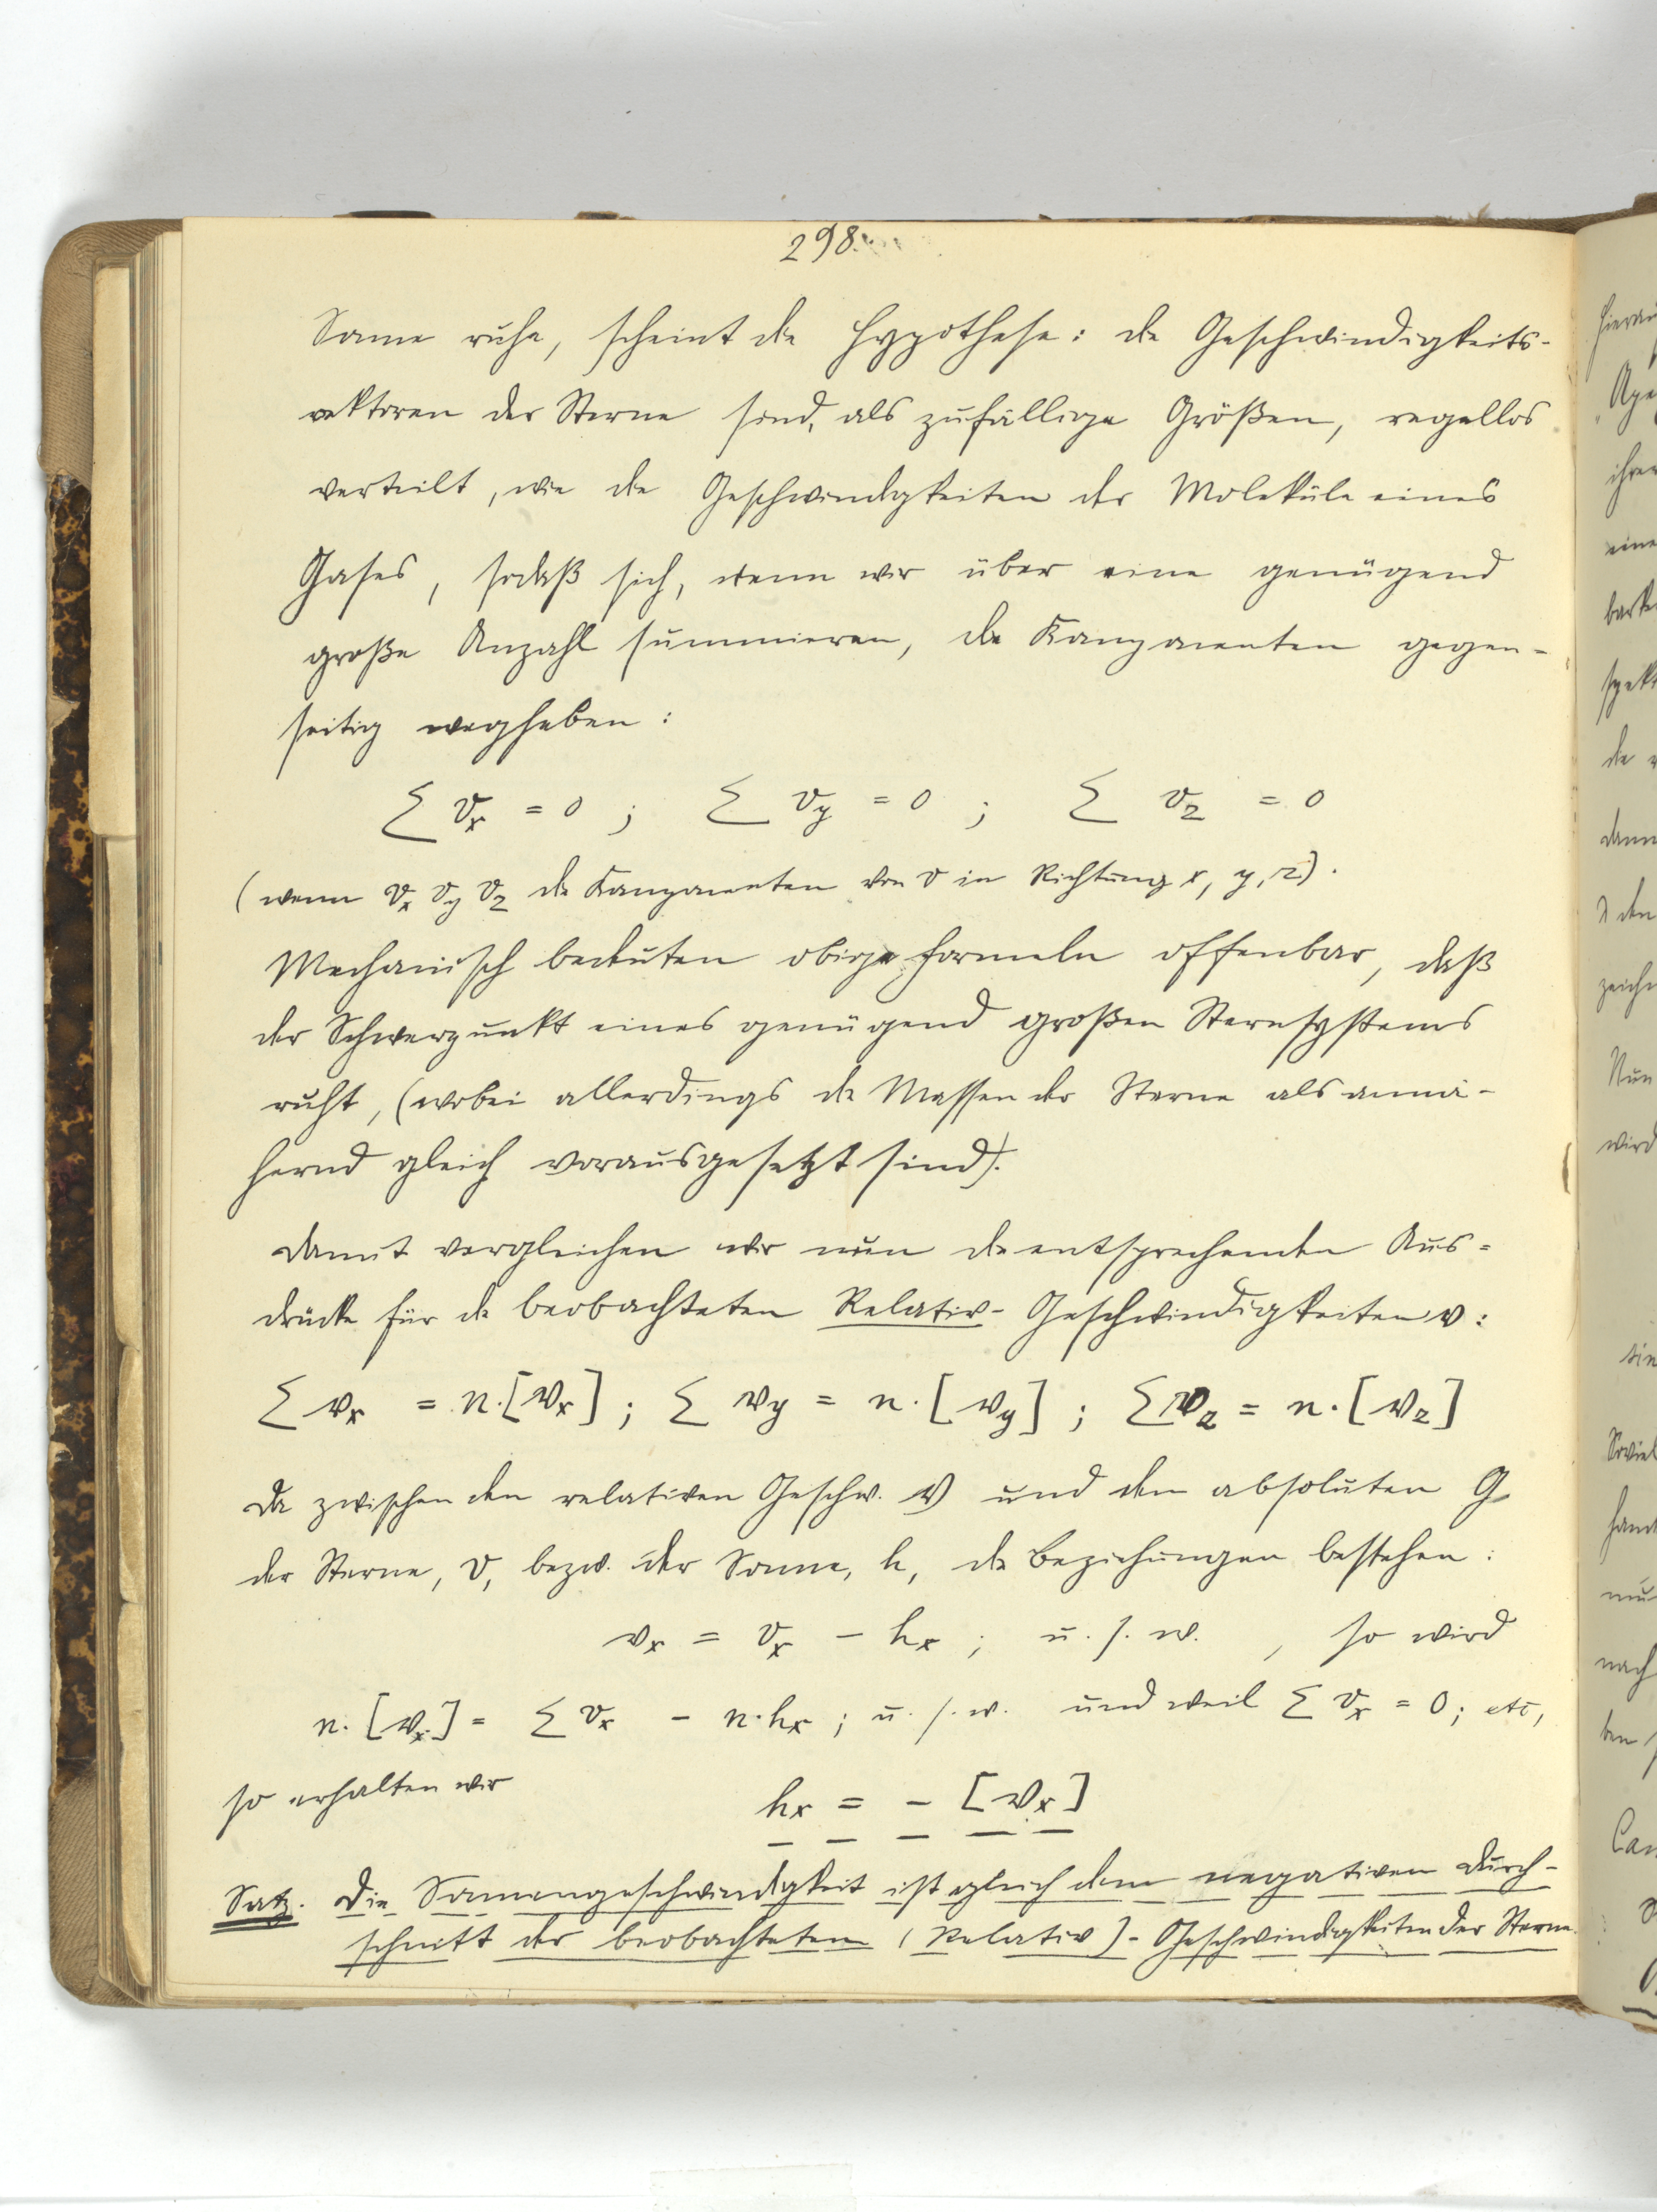 298.
Sonne ruhe, scheint die Hypothese: die Geschwindigkeits-
vektoren der Sterne sind, als zufällige Größen, regellos
verteilt, wie die Geschwindigkeiten der Moleküle eines
Gases, sodaß sich, wenn wir über eine genügend
große Anzahl summieren, die Komponenten gegen-
seitig wegheben:
∑ v_x = 0 ; ∑ v_y = 0 ; ∑ v_z = 0
(wenn v_x v_y v_z die Komponenten von v in Richtung x, y, z).
Mechanisch bedeuten obige Formeln offenbar, daß
der Schwerpunkt eines genügend großen Sternsystems
ruht, (wobei allerdings die Massen der Sterne als annä-
hernd gleich vorausgesetzt sind).
Damit vergleichen wir nun die entsprechenden Aus=
drücke für die beobachteten Relativ- Geschwindigkeiten v:
∑ v_x = n·[v_x] ; ∑ v_y = n·[v_y] ; ∑ v_z = n·[v_z]
Da zwischen den relativen Geschw. v und den absoluten G
der Sterne, v, bezw. der Sonne, h, die Beziehungen bestehen:
v_x = v_x − h_x ; u. s. w. , so wird
n·[v_x] = ∑ v_x − n·h_x ; u. s. w. und weil ∑ v_x = 0; etc,
so erhalten wir h_x = − [v_x]
Satz. Die Sonnengeschwindigkeit ist gleich dem negativen Durch-
schnitt der beobachteten (Relativ)-Geschwindigkeiten der Sterne.